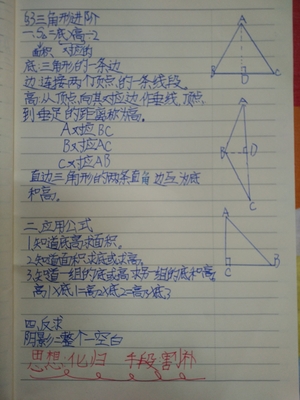 三角形进阶
一、S=底×高÷2
面积 对应的
底:三角形的一条边
边:连接两个顶点的一条线段。
高:从顶点向其对应边作垂线,顶点
到垂足的距离称为高。
A对应BC
B对应AC
C对应AB
直边三角形的两条直角边互为底
和高。
二、应用公式
1.知道底高求面积。
2.知道面积求底或求高。
3.知道一组的底或高求另一组的底和高。
高1×底1=高2×底2=高3×底3
四、反求
阴影=整个-空白
思想:化归 手段:割补
A
B
D
C
A
B
D
C
A
C
B